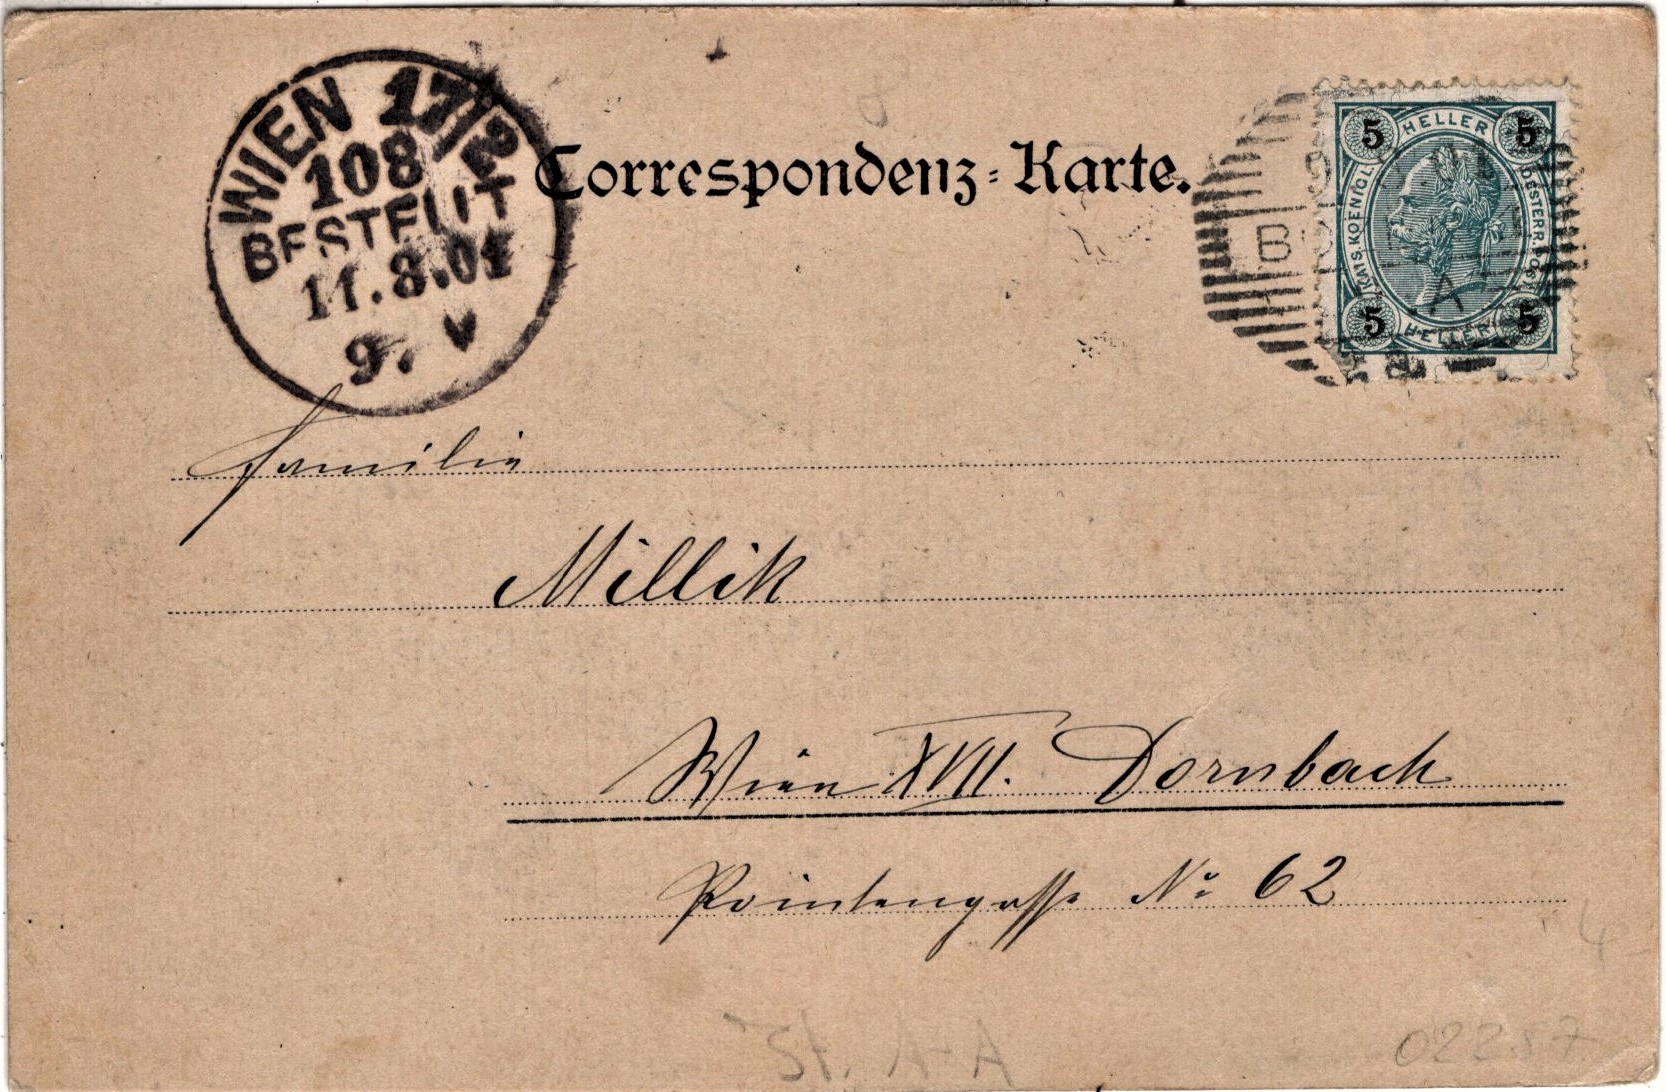 WIEN 17/2
108
BESTELLT
9. V
Correspondenz-Karte.
5 HELLER 5
KAIS. KOENIGL. OESTERR. POST
5 HELLER 5
Familie
Millik
Wien XVII. Dornbach
Pointengasse No 62
4
02257